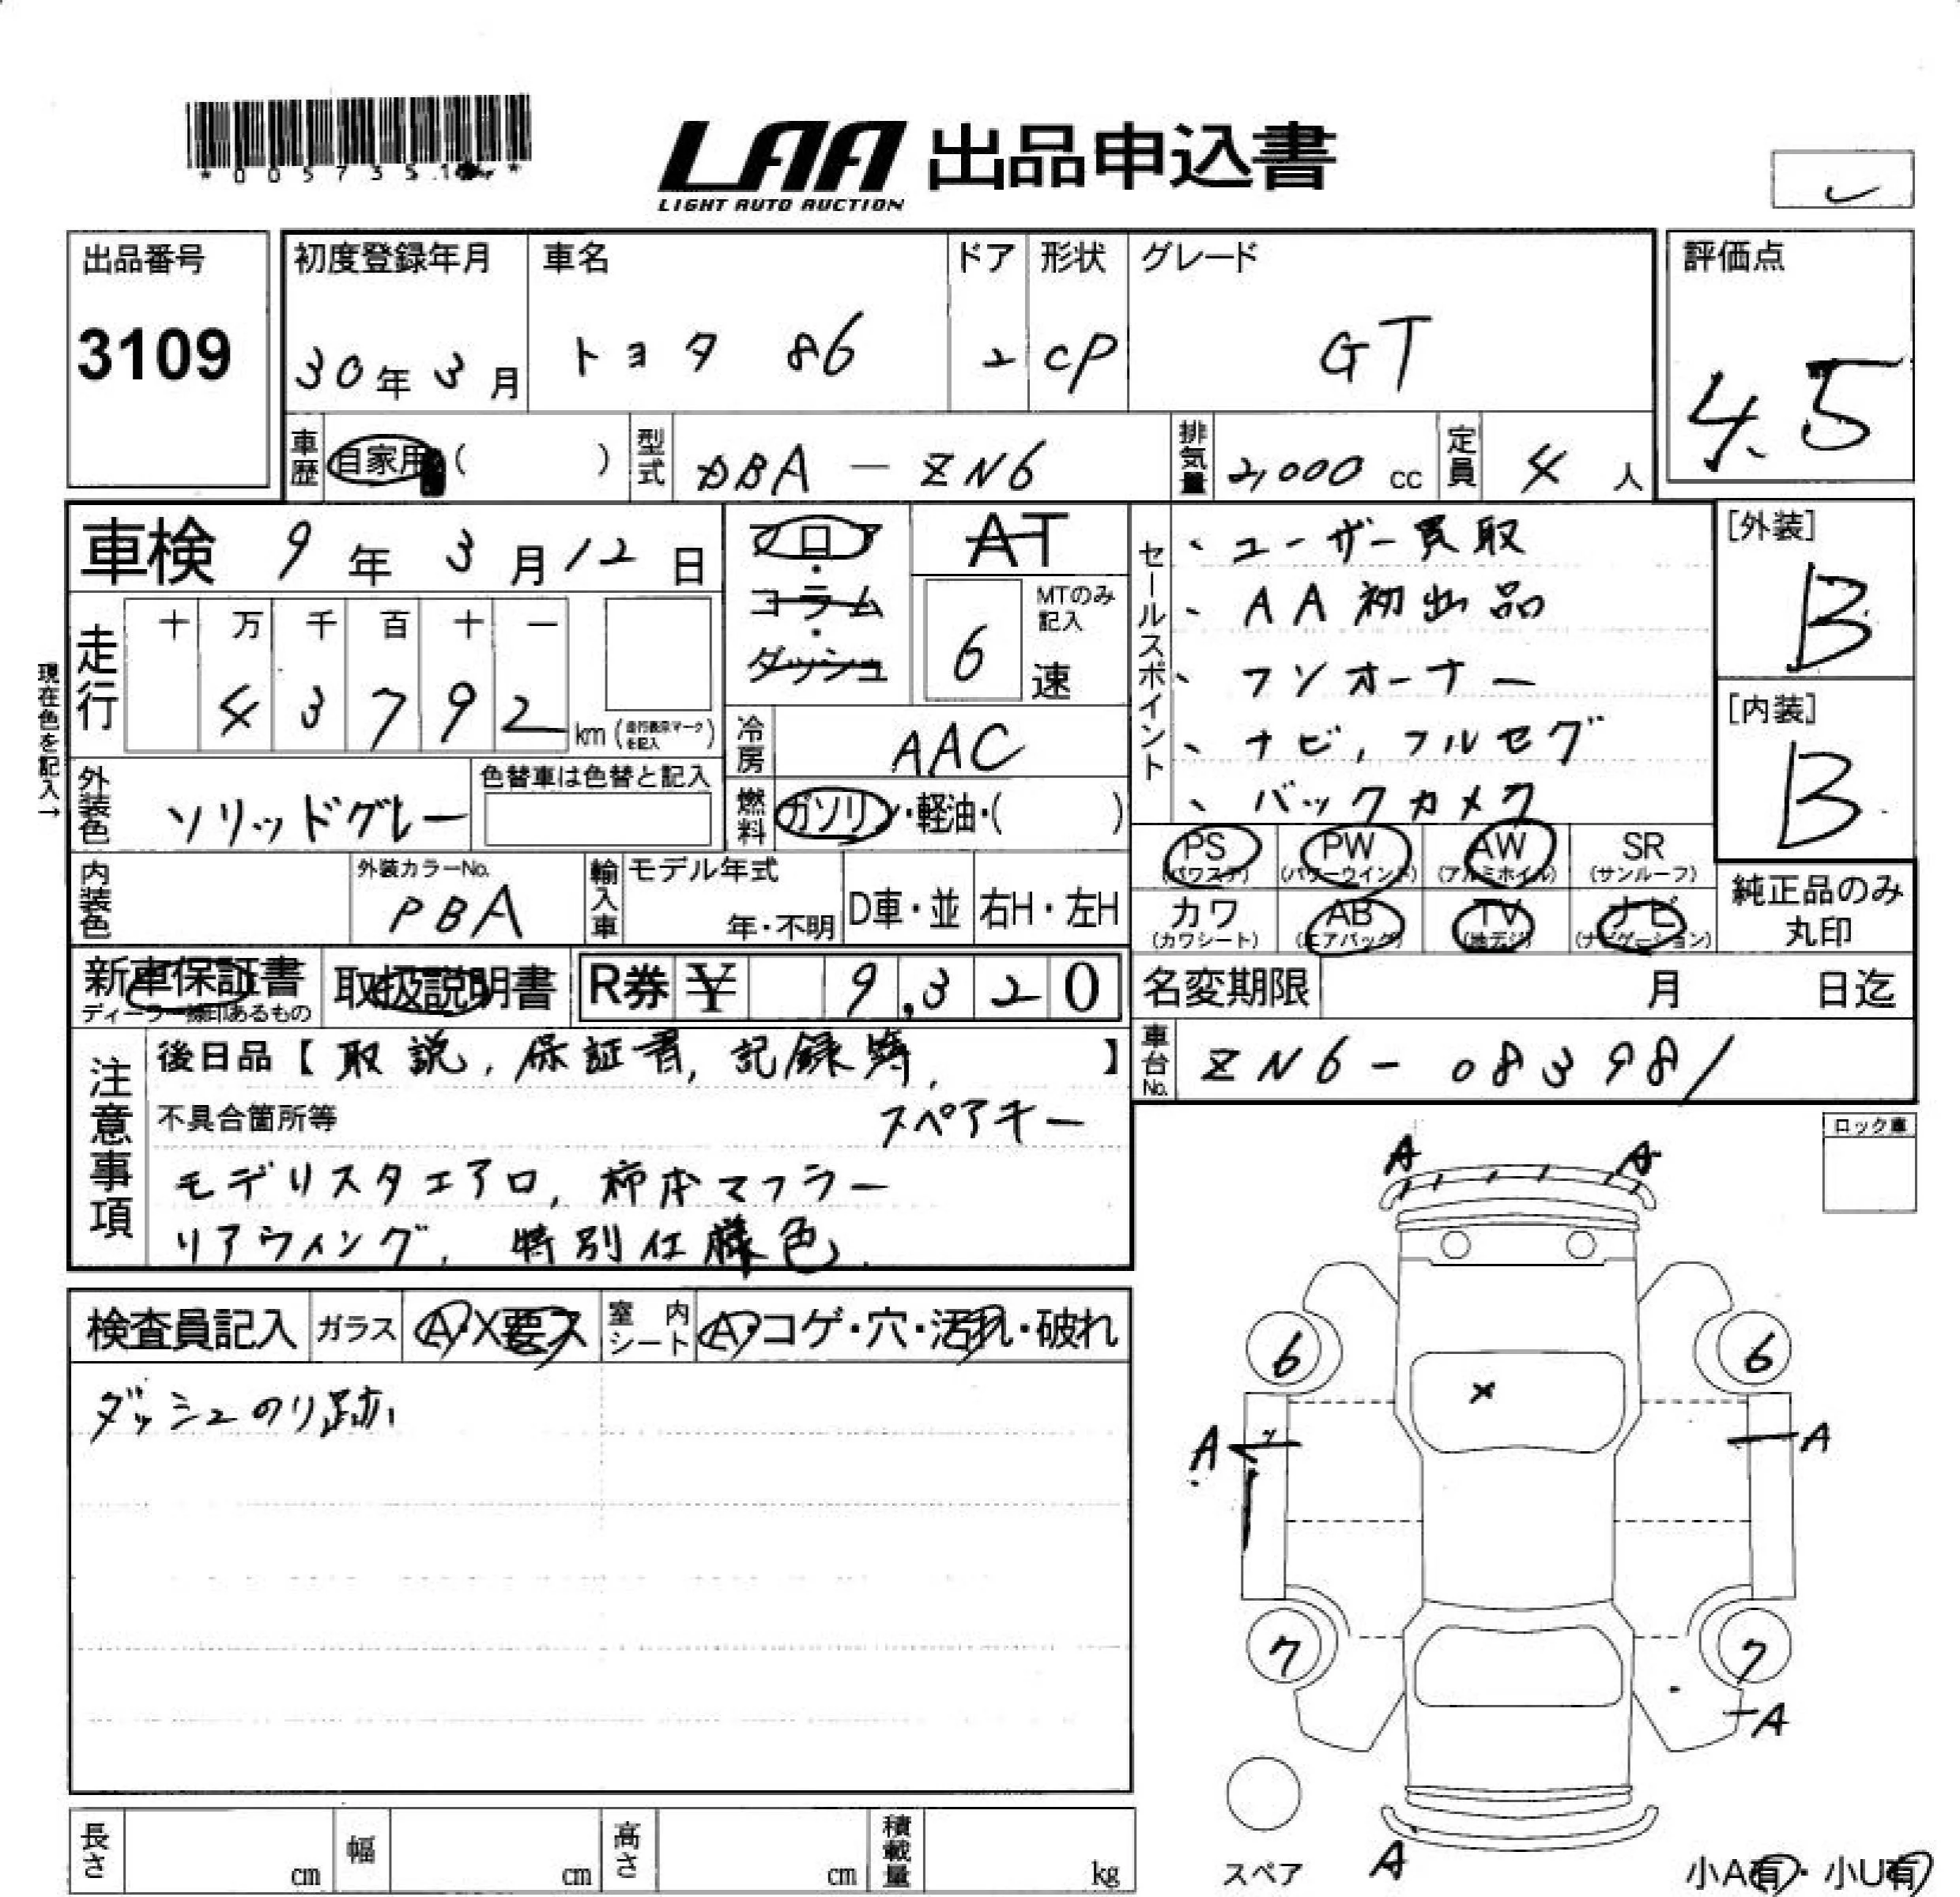 *005735
LAA 出品申込書
LIGHT AUTO AUCTION
出品番号
3109
初度登録年月
30年3月
車名
トヨタ 86
ドア
2
形状
CP
グレード
GT
評価点
4.5
車歴
自家用 ( )
型式
DBA - ZN6
排気量
2,000 cc
定員
4 人
車検 9年3月12日
フロア・コラム・ダッシュ
AT
MTのみ記入
6 速
セールスポイント
、ユーザー買取
、AA初出品
、ワンオーナー
、ナビ, フルセグ
、バックカメラ
[外装]
B
[内装]
B
現在色を記入→
走行
十 万 千 百 十 一
4 3 7 9 2 km (走行表示マークを記入)
冷房
AAC
外装色
ソリッドグレー
色替車は色替と記入
燃料
ガソリン・軽油・( )
内装色
外装カラーNo.
PBA
輸入車
モデル年式
年・不明
D車・並
右H・左H
PS (パワステ)
PW (パワーウインド)
AW (アルミホイル)
SR (サンルーフ)
カワ (カワシート)
AB (エアバッグ)
TV (地デジ)
ナビ (ナビゲーション)
純正品のみ丸印
新車保証書
ディーラー捺印あるもの
取扱説明書
R券 ¥ 9,320
名変期限 月 日迄
車台No.
ZN6-083981
注意事項
後日品【取説, 保証書, 記録簿, 】
スペアキー
不具合箇所等
モデリスタエアロ, 柿本マフラー
リアウィング, 特別仕様色
ロック車
検査員記入
ガラス
A・X要ス
室内シート
A・コゲ・穴・汚れ・破れ
ダッシュのり跡
A A
6 6
×
A A
7 7
A
A
スペア
小A有・小U有
長さ cm
幅 cm
高さ cm
積載量 kg